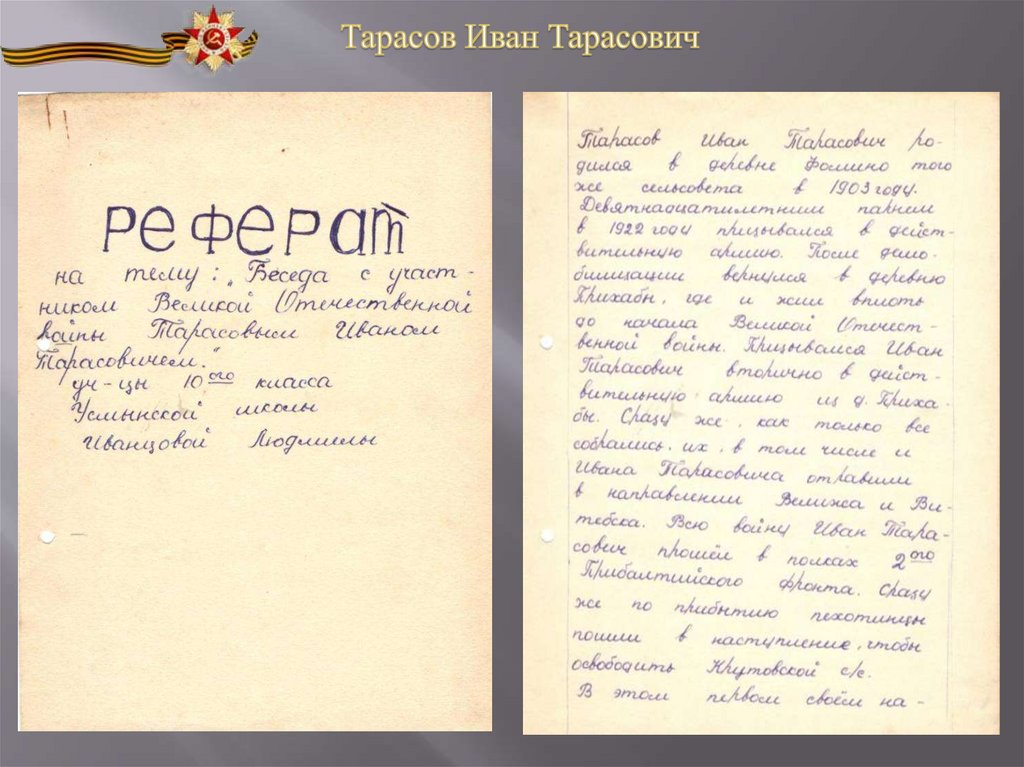 Тарасов Иван Тарасович
Реферат
на тему: „Беседа с участ-
ником Великой Отечественной
войны Тарасовым Иваном
Тарасовичем."
уч-цы 10ого класса
Усмынской школы
Иванцовой Людмилы
Тарасов Иван Тарасович ро-
дился в деревне Фомино того
же сельсовета в 1903 году.
Девятнадцатилетним парнем
в 1922 году призывался в дейст-
вительную армию. После демо-
билизации вернулся в деревню
Прихабы, где и жил вплоть
до начала Великой Отечест-
венной войны. Призывался Иван
Тарасович вторично в дейст-
вительную армию из д. Приха-
бы. Сразу же, как только все
собрались, их, в том числе и
Ивана Тарасовича отправили
в направлении Велижа и Ви-
тебска. Всю войну Иван Тара-
сович прошёл в полках 2ого
Прибалтийского фронта. Сразу
же по прибытию пехотинцы
пошли в наступление, чтобы
освободить Крутовской с/с.
В этом первом своём на-